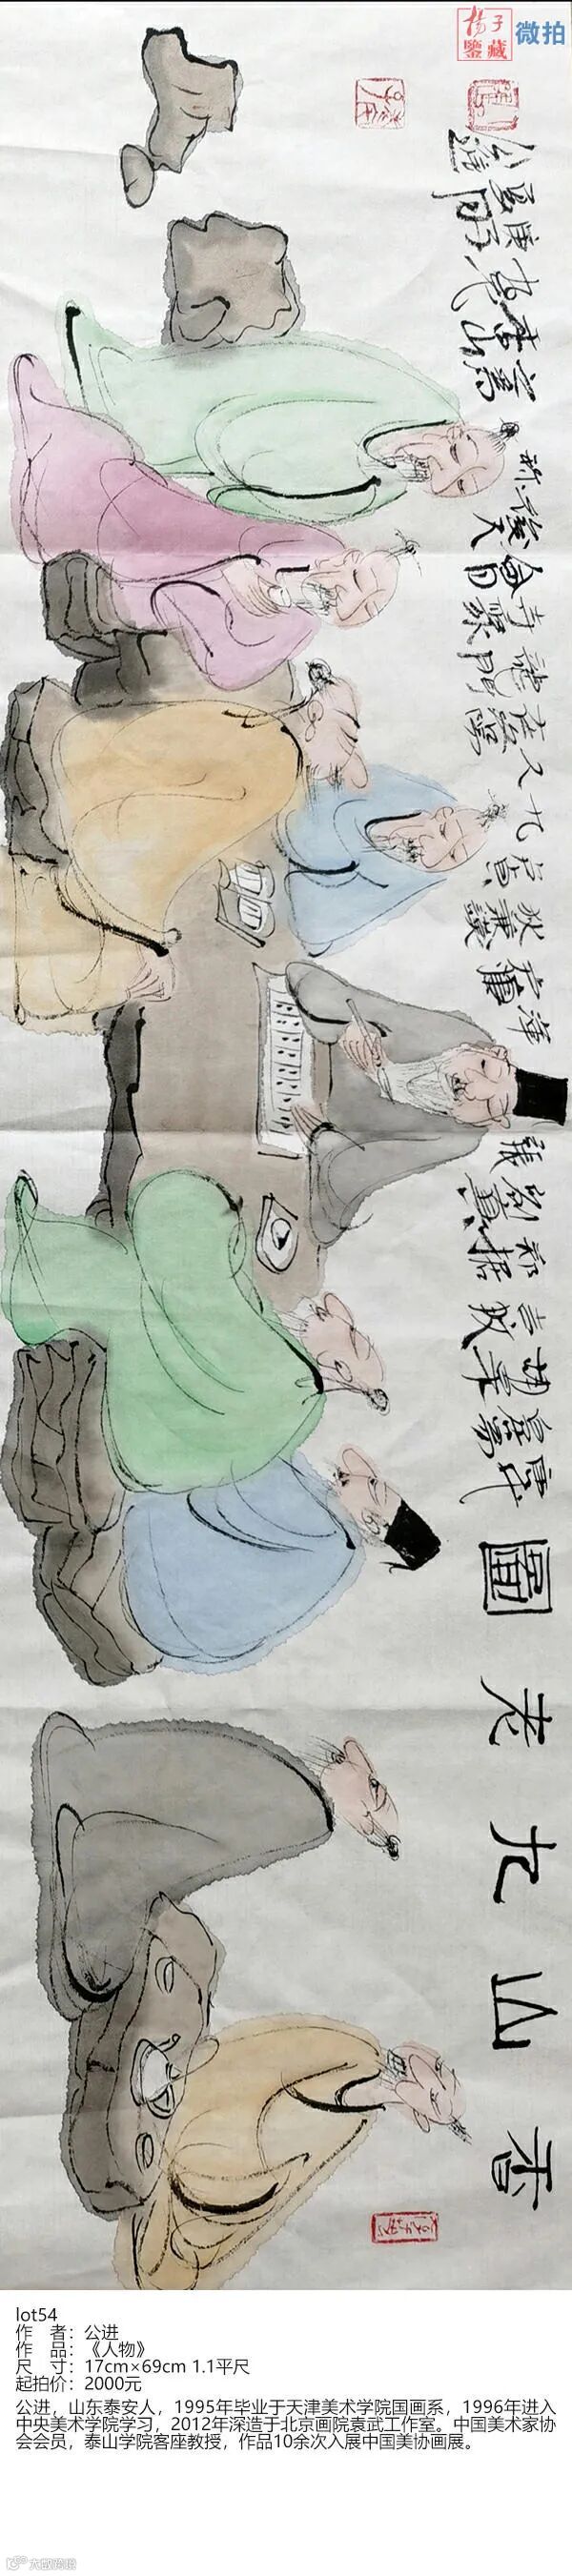 揚子
鑒藏
微拍
香山九老圖
唐代
易胡
吉
劉真
張
渾
狄兼謨
九人在洛陽
龍門寺聚會
後人称
香山九老
公進
lot54
作　者：公进
作　品：《人物》
尺　寸：17cm×69cm 1.1平尺
起拍价：2000元
公进，山东泰安人，1995年毕业于天津美术学院国画系，1996年进入
中央美术学院学习，2012年深造于北京画院袁武工作室。中国美术家协
会会员，泰山学院客座教授，作品10余次入展中国美协画展。